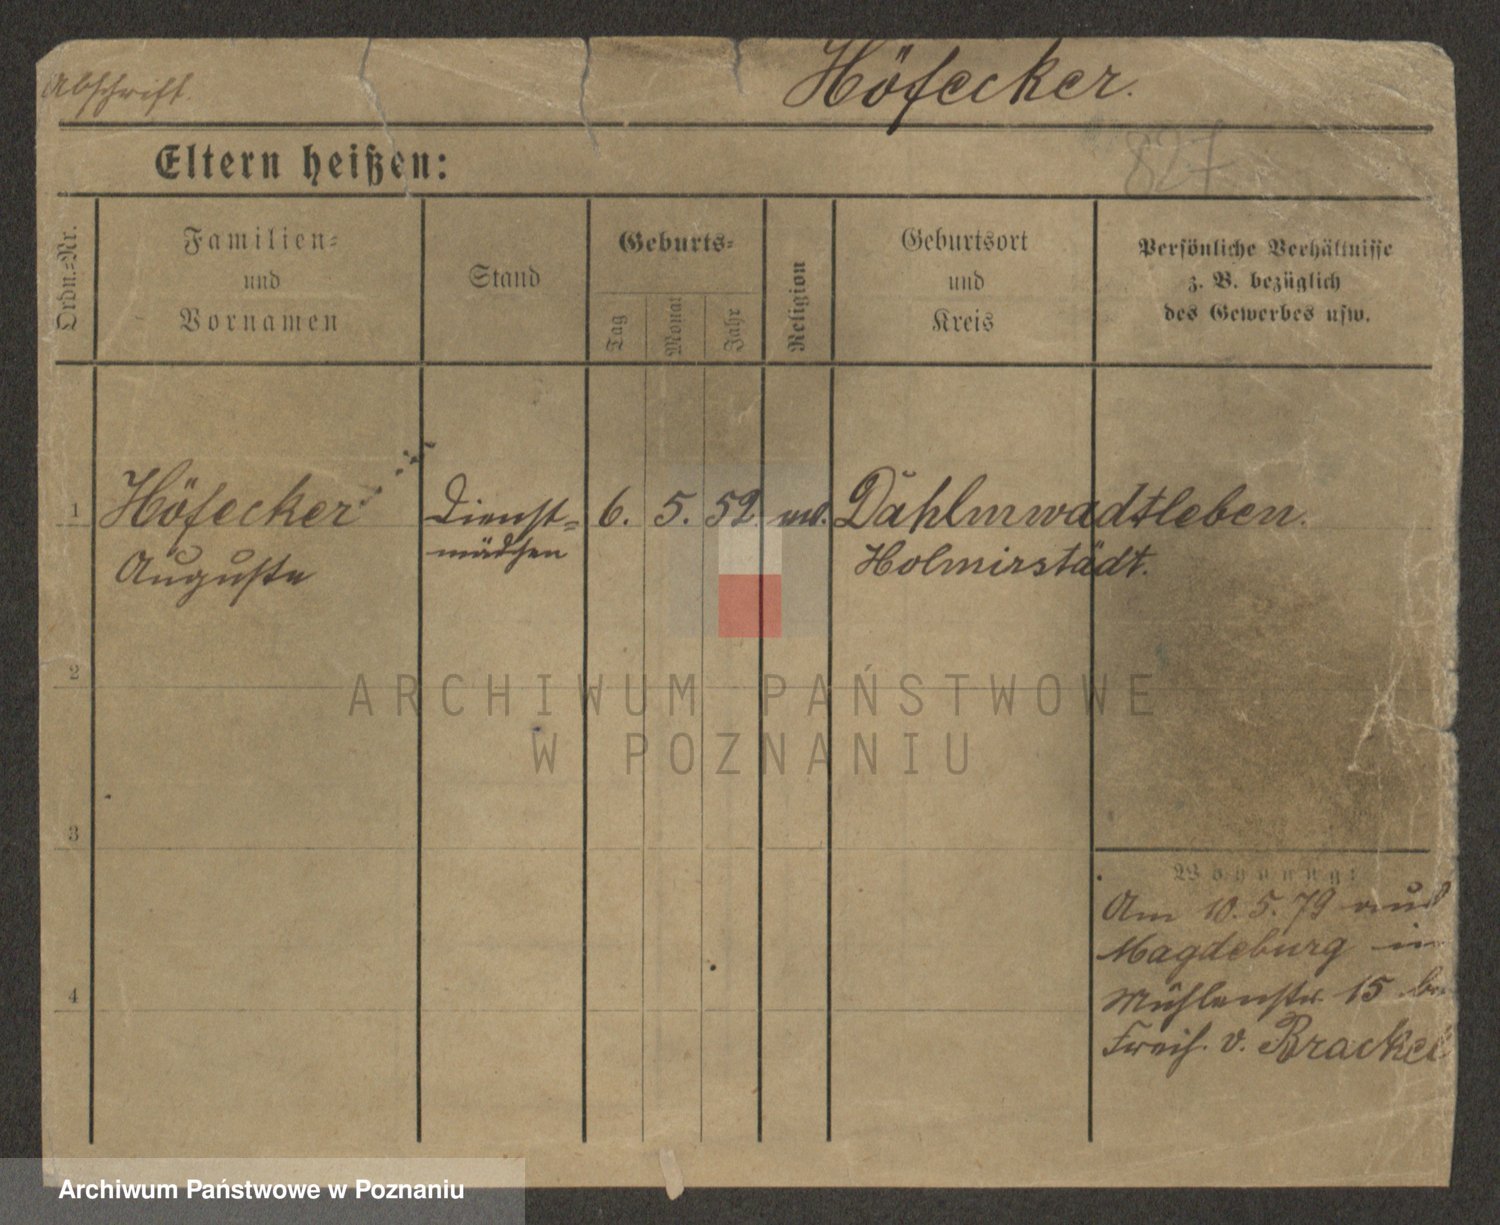 Abschrift.
Höfecker.
827
Eltern heißen:
Ordn.-Nr.
Familien-
und
Vornamen
Stand
Geburts-
Tag
Monat
Jahr
Religion
Geburtsort
und
Kreis
Persönliche Verhältnisse
z. B. bezüglich
des Gewerbes usw.
1 Höfecker Dienst- 6. 5. 52. Dahlmwadtleben.
Auguste mädchen Holmirstädt.
2
3
4
Wohnung:
Am 10.5.79 aus
Magdeburg in
Mühlenstr. 15 bei
Freih. v. Brackel
ARCHIWUM PAŃSTWOWE
W POZNANIU
Archiwum Państwowe w Poznaniu